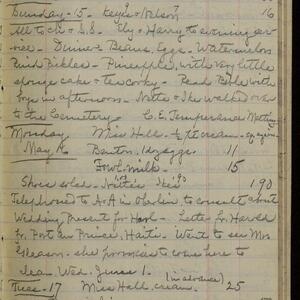 Sunday - 15. Keyes & Nelson 16
All to ch. & S.S. Ely & Harry to evening ser
vice. Dinner Beans, Eggs. Watermelon
Rind Pickles - Pineapple, with very little
sponge cake & tea cooky. Read Bible with
boys in afternoon. Nettie & I walked over
to the Cemetery. C. E. Temperance Meeting
Monday Miss Hall - ½ pt cream.
May 16 Benton, 1 doz eggs 11
Fowl. milk - 15
Shoes soled - Nettie's 1 90
Telephoned to A. A in Oberlin to consult about
Wedding Present for Har. Letter for Harold
fr. Port au Prince, Haiti. Went to see Mrs
Gleason. She promised to come here to
clean Wed. June 1. (in advance)
Tues. - 17 Miss Hall, cream, 25